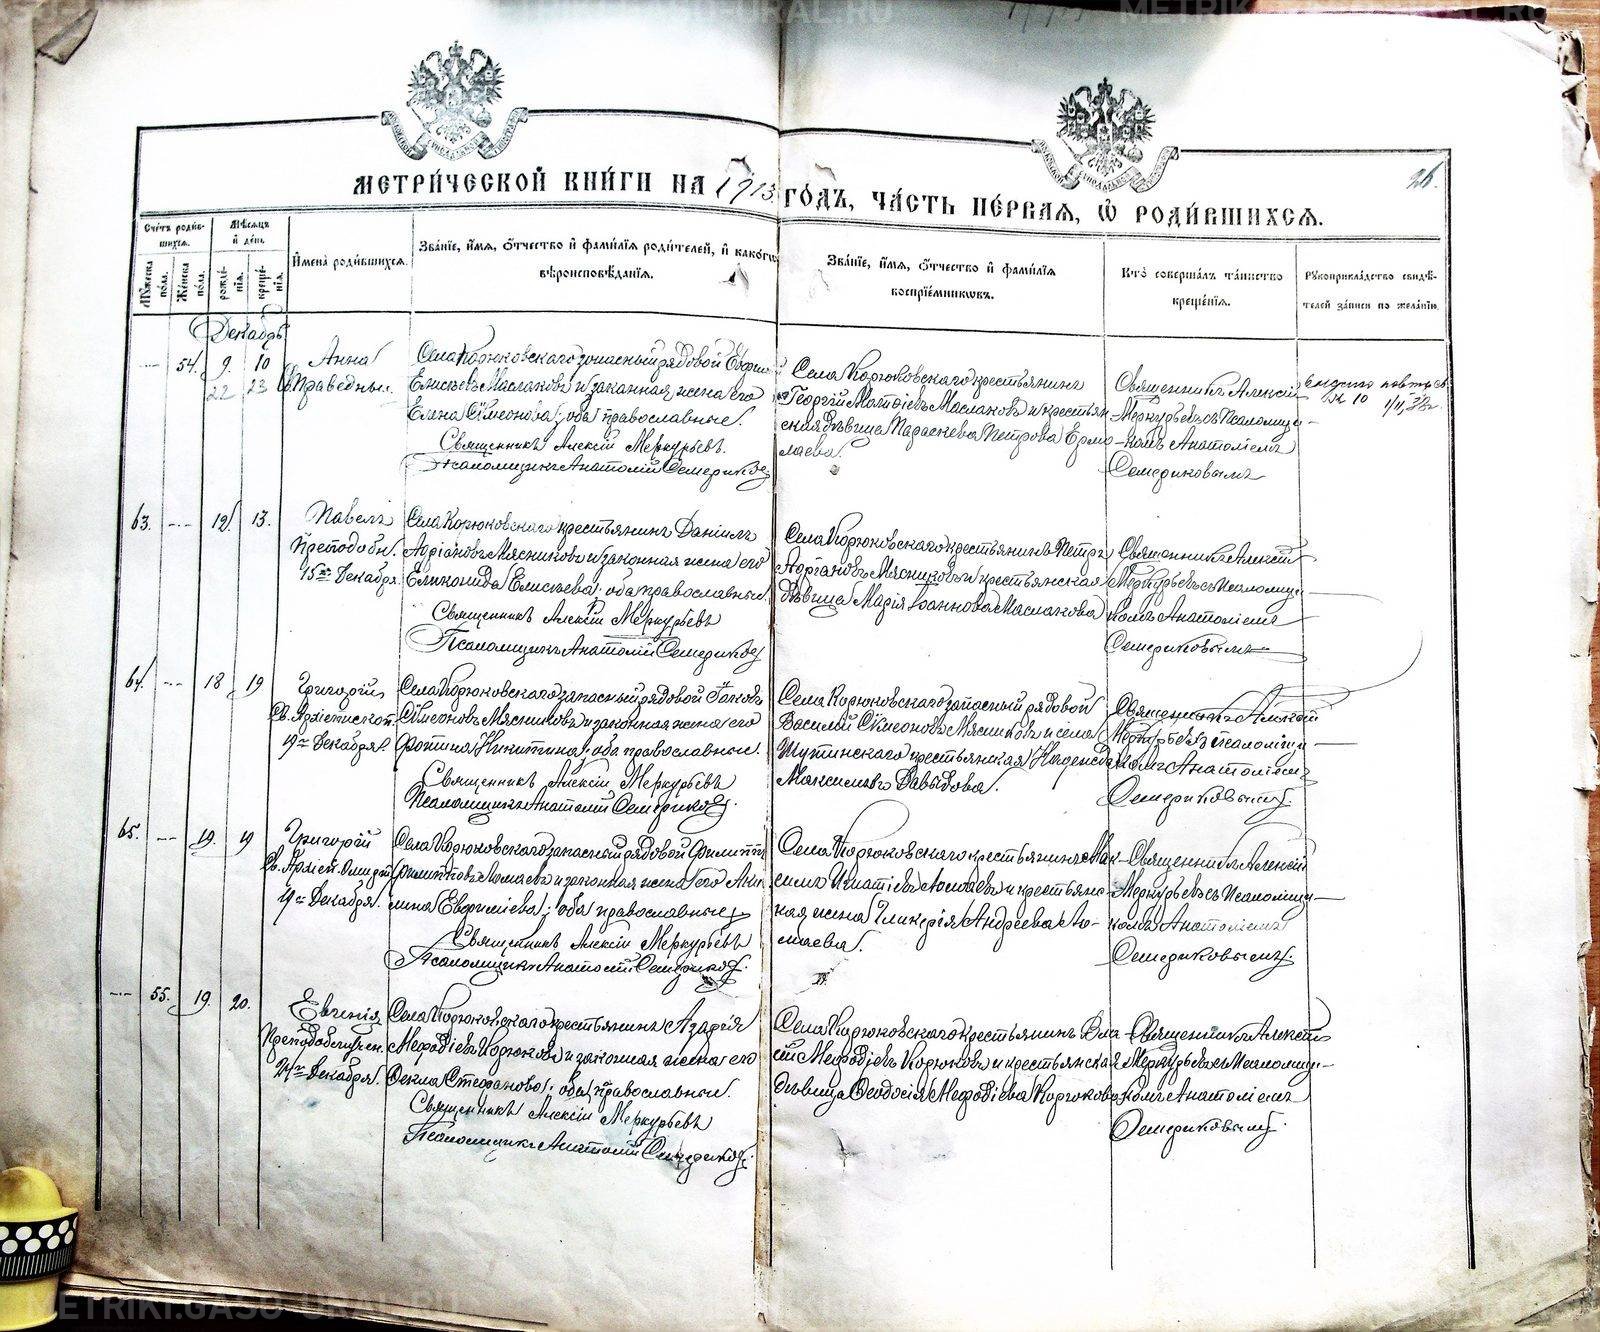 METRIKI.GASO-URAL.RU
METRIKI.GASO-URAL.RU
26.
МЕТРИЧЕСКОЙ КНИГИ НА 1913 ГОДЪ, ЧАСТЬ ПЕРВАЯ, Ѡ РОДИВШИХСЯ.
Счетъ родив-
шихся.
Мужеска пола.
Женска пола.
Мѣсяцъ и день.
рождения.
крещения.
Имена родившихся.
Званіе, имя, отчество и фамилія родителей, и какогѡ
вѣроисповѣданія.
Званіе, имя, отчество и фамилія
воспріемниковъ.
Кто совершалъ таинство
крещенія.
Рукоприкладство свидѣ-
телей записи по желанію.
Декабрь
54. 9. 10
22 23
Анна
Св. Праведныя
Села Корюковскаго запасный рядовой
Елисѣевъ Маслаковъ и законная жена его
Елена Сѵмеонова; оба православные.
Священникъ Алексій Меркурьевъ.
Псаломщикъ Анатолій Семериковъ
Села Корюковскаго крестьянинъ
Георгій Матѳіевъ Маслаковъ и крестьян
ская дѣвица Параскева Петрова Ермо
лаева.
Священникъ Алексій
Меркурьевъ съ Псаломщи-
комъ Анатоліемъ
Семериковымъ
63. 12 13.
Павелъ
Преподобн.
15го Декабря
Села Корюковскаго крестьянинъ Даніилъ
Адріановъ Мясниковъ и законная жена его
Еликонида Елисѣева; оба православные.
Священникъ Алексій Меркурьевъ
Псаломщикъ Анатолій Семериковъ
Села Корюковскаго крестьянинъ Петръ
Адріановъ Мясниковъ и крестьянская
дѣвица Марія Іоаннова Маслакова
Священникъ Алексій
Меркурьевъ съ Псаломщи-
комъ Анатоліемъ
Семериковымъ
64. 18 19
Григорій
Св. Архіепископ.
19го Декабря.
Села Корюковскаго запасный рядовой Іаковъ
Сѵмеоновъ Мясниковъ и законная жена его
Фотина Никитина; оба православные.
Священникъ Алексій Меркурьевъ
Псаломщикъ Анатолій Семериковъ.
Села Корюковскаго запасный рядовой
Василій Сѵмеоновъ Мясниковъ и села
крестьянская
Максимова Давыдова.
Священникъ Алексій
Меркурьевъ съ псаломщи-
комъ Анатоліемъ
Семериковымъ.
65. 19. 19
Григорій
Св. Архіеп.
19го Декабря.
Села Корюковскаго запасный рядовой Филиппъ
Филипповъ и законная жена его
Евфиміева; оба православные.
Священникъ Алексій Меркурьевъ
Псаломщикъ Анатолій Семериковъ.
Села Корюковскаго крестьянинъ Мак-
симъ Игнатіевъ и крестьянс-
кая жена Гликерія Андреева
Священникъ Алексій
Меркурьевъ съ Псаломщи-
комъ Анатоліемъ
Семериковымъ.
55. 19. 20.
Евгенія
Преподобномучен.
24го Декабря.
Села Корюковскаго крестьянинъ Азарія
Меѳодіевъ Корюковъ и законная жена его
Ѳекла Стефанова; оба православные.
Священникъ Алексій Меркурьевъ
Псаломщикъ Анатолій Семериковъ.
Села Корюковскаго крестьянинъ
Меѳодіевъ Корюковъ и крестьянская
дѣвица Ѳеодосія Меѳодіева Корюкова
Священникъ Алексій
Меркурьевъ съ Псаломщи-
комъ Анатоліемъ
Семериковымъ.
METRIKI.GASO-URAL.RU
METRIKI.GASO-URAL.RU